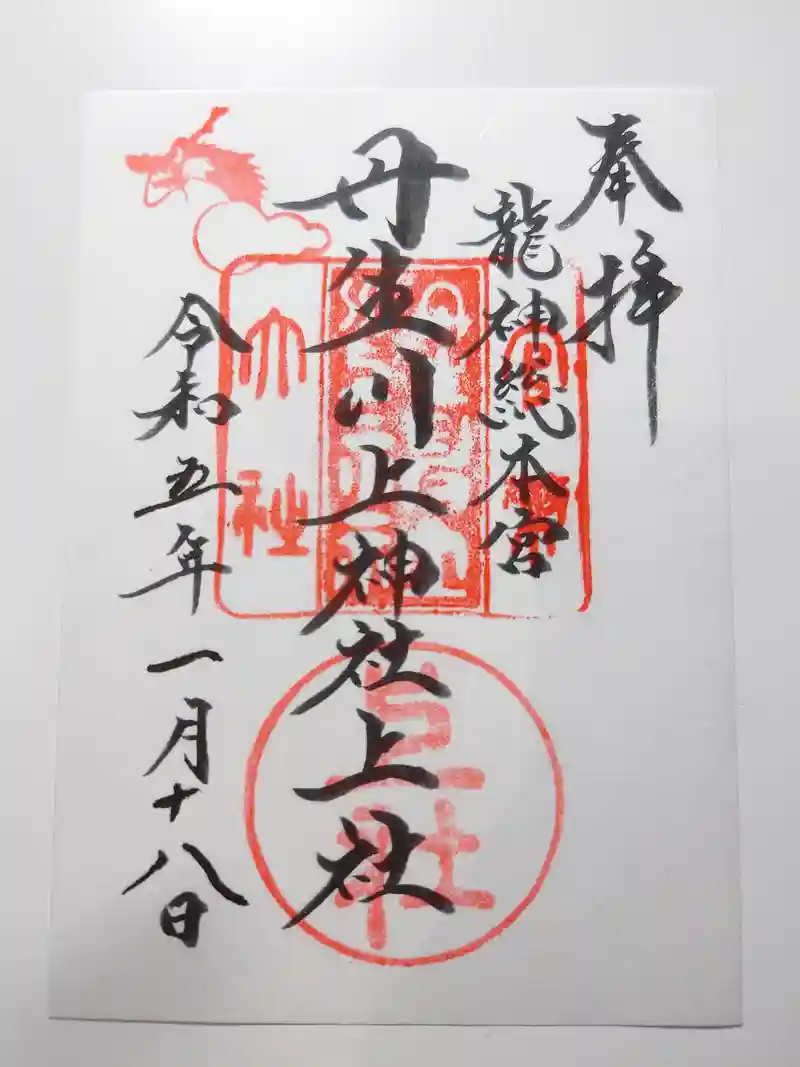 奉拝
龍神総本宮
丹生川上神社上社
令和五年一月十八日
官幣
大社
上社